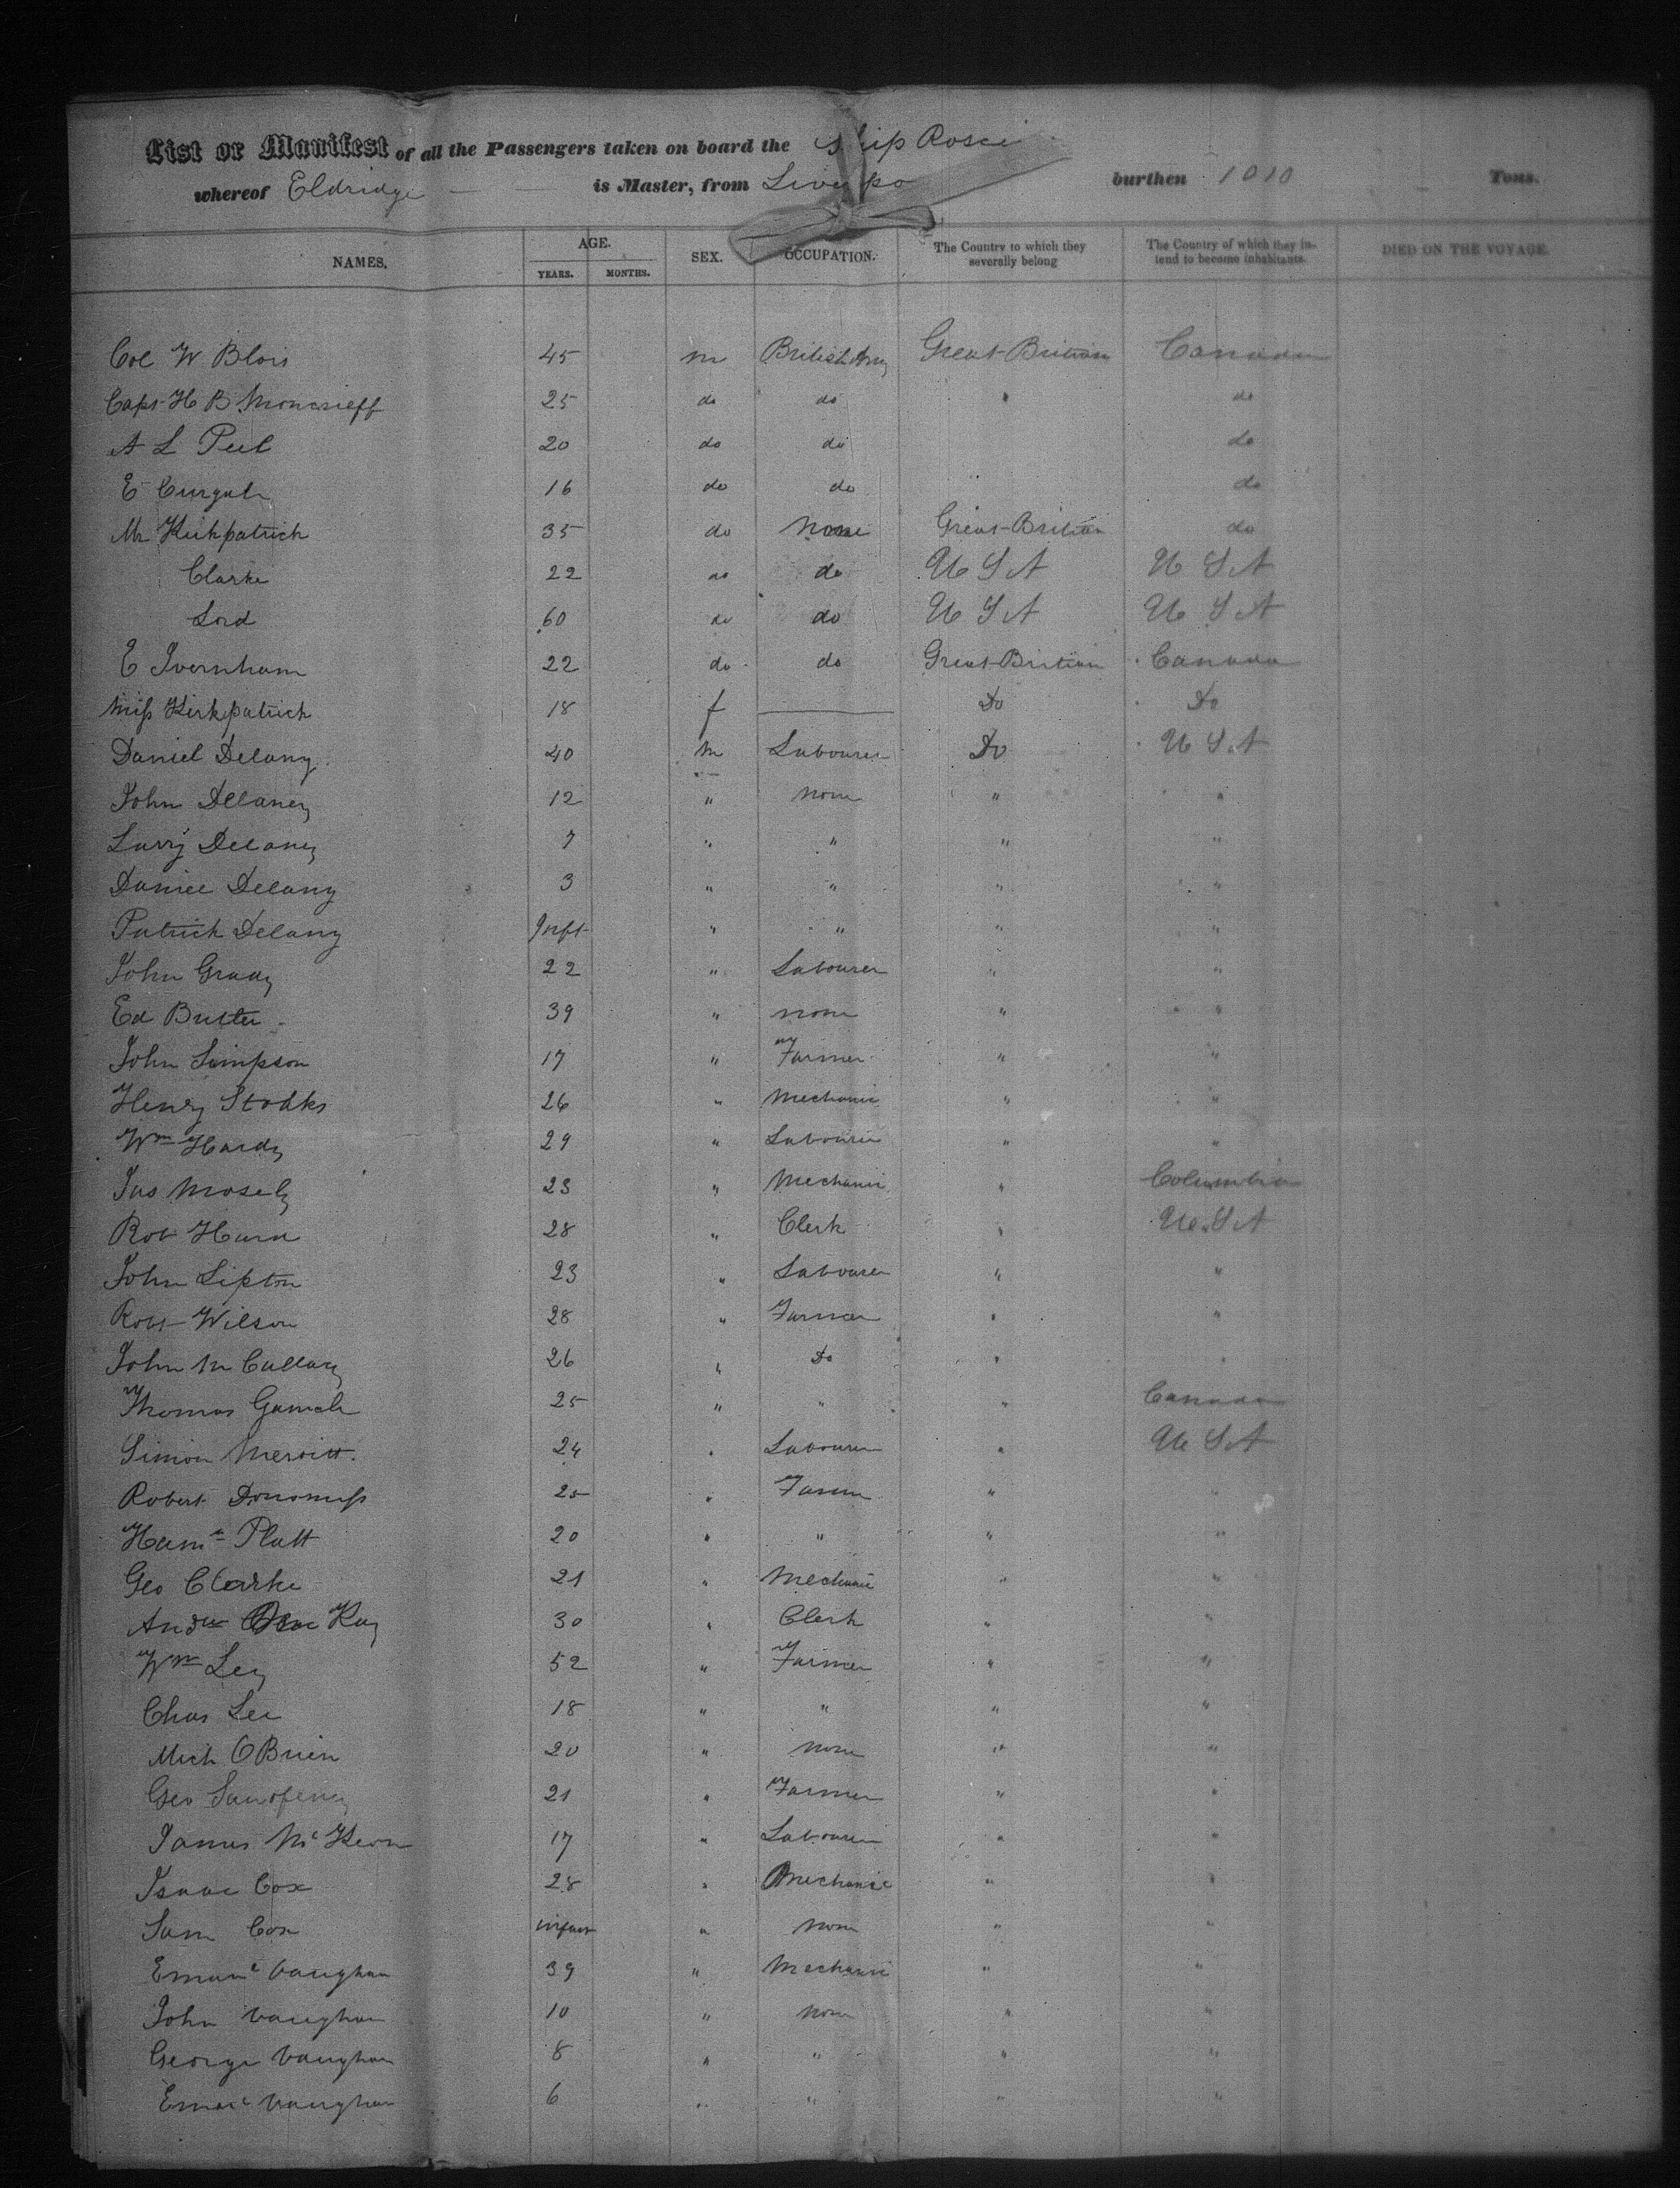 List or Manifest of all the Passengers taken on board the Ship Rosci
whereof Eldridge is Master, from Liverpo burthen 1010 Tons.
NAMES. AGE. YEARS. MONTHS. SEX. OCCUPATION. The Country to which they severally belong The Country of which they intend to become inhabitants. DIED ON THE VOYAGE.
Col W Blois 45 m British Army Great Britian Canada
Capt H B Moncrieff 25 do do " do
A L Peel 20 do do do
E 16 do do do
Mr Kirkpatrick 35 do None Great Britian do
Clarke 22 do do U S A U S A
Lord 60 do do U S A U S A
E Ivernham 22 do do Great Britian Canada
Miss Kirkpatrick 18 f Do Do
Daniel Delany 40 m Labourer Do U S A
John Delaney 12 " none " "
Larry Delaney 7 " " " "
Daniel Delany 3 " " " "
Patrick Delany Inft " " " "
John Grady 22 " Labourer " "
Ed Butler 39 " none " "
John Simpson 17 " Farmer " "
Henry Stobbs 26 " Mechanic " "
Wm Hardy 29 " Labourer " "
Jas Mosely 23 " Mechanic " Columbia
Rob Hurn 28 " Clerk " U S A
John Lipton 23 " Labourer " "
Robt Wilson 28 " Farmer " "
John Mc Cullary 26 " Do " "
Thomas Gamch 25 " " " Canada
Simon Merritt 24 " Labourer " U S A
Robert 25 " Farmer " "
Platt 20 " " " "
Geo Clarke 21 " Mechanic " "
Andw Kay 30 " Clerk " "
Wm Ley 52 " Farmer " "
Chas Lee 18 " " " "
Mich O Brien 20 " none " "
Geo 21 " Farmer " "
James McKeon 17 " Labourer " "
Isaac Cox 28 " Mechanic " "
Sam Cox infant " none " "
Emanl Vaughan 39 " Mechanic " "
John Vaughan 10 " none " "
George Vaughan 8 " " " "
Emanl Vaughan 6 " " " "